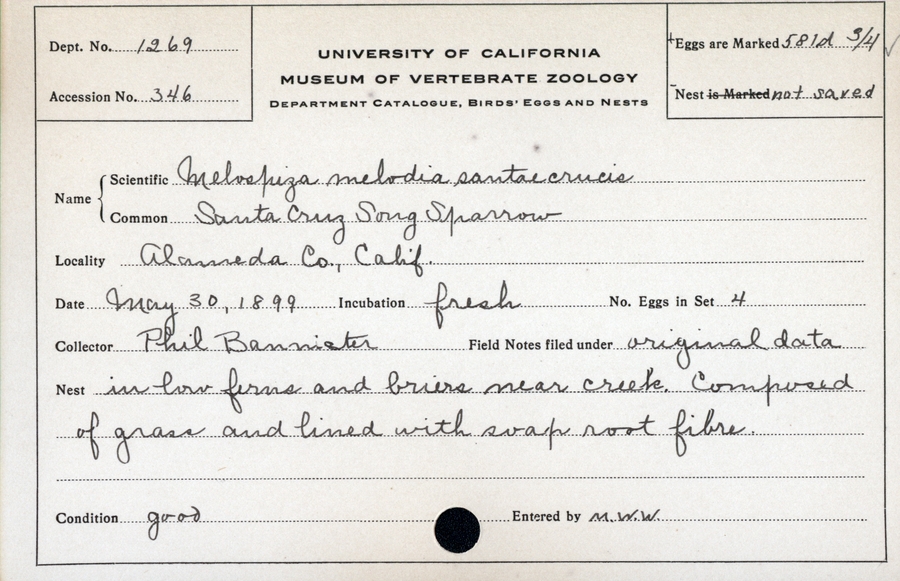 Dept. No. 1269
Accession No. 346
UNIVERSITY OF CALIFORNIA
MUSEUM OF VERTEBRATE ZOOLOGY
DEPARTMENT CATALOGUE, BIRDS' EGGS AND NESTS
Eggs are Marked 581d 3/4
Nest is Marked not saved
Name
Scientific Melospiza melodia santaecrucis
Common Santa Cruz Song Sparrow
Locality Alameda Co., Calif.
Date May 30, 1899 Incubation fresh No. Eggs in Set 4
Collector Phil Bannister Field Notes filed under original data
Nest in low ferns and briers near creek. Composed
of grass and lined with soap root fibre.
Condition good Entered by M.W.W.